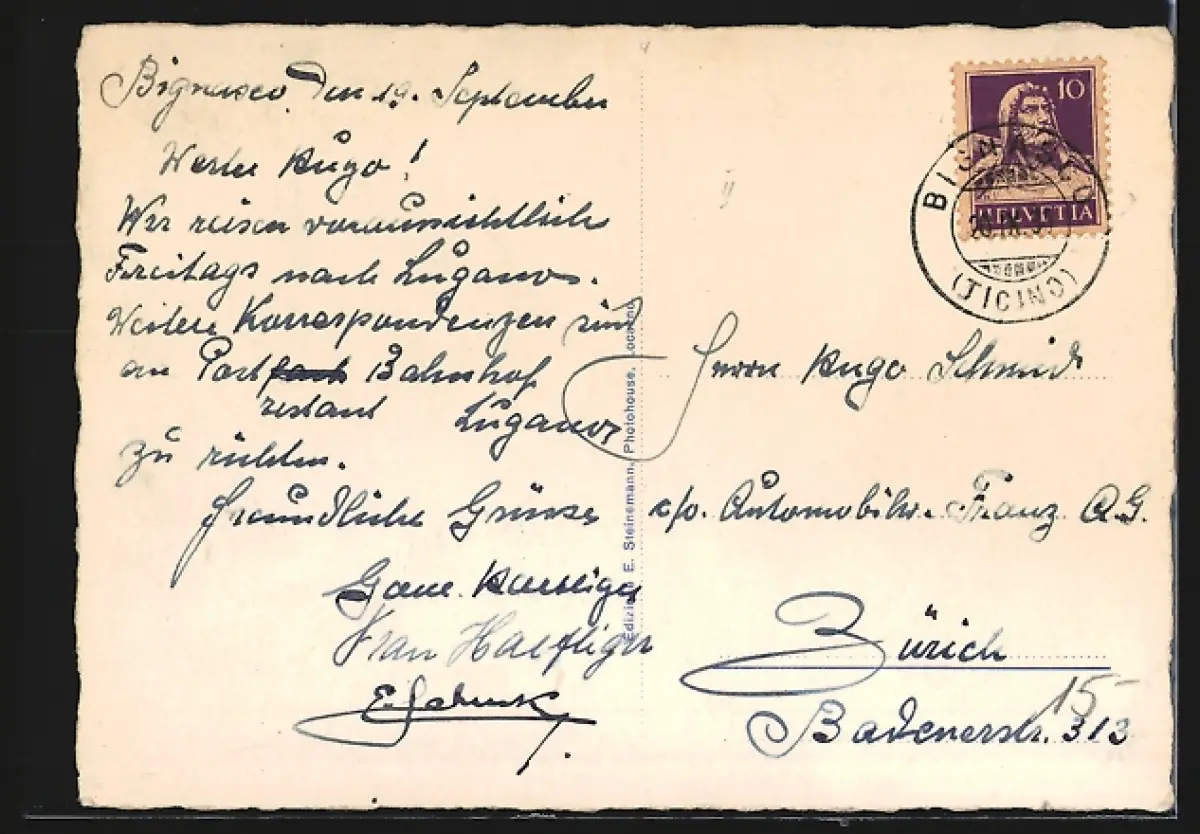 Bignasco, den 19. September
Werter Hugo!
Wir reisen voraussichtlich
Freitags nach Lugano.
Weitere Korrespondenzen sind
an Post Bahnhof
restant Lugano
zu richten.
Freundliche Grüsse
Haefliger
Frau Haefliger
E.
Edizione E. Steinemann, Photohouse, Locarno
10
HELVETIA
BIGNASCO
(TICINO)
Herrn Hugo Schmid
c/o. Automobilw. Franz A.G.
Zürich
15
Badenerstr. 313